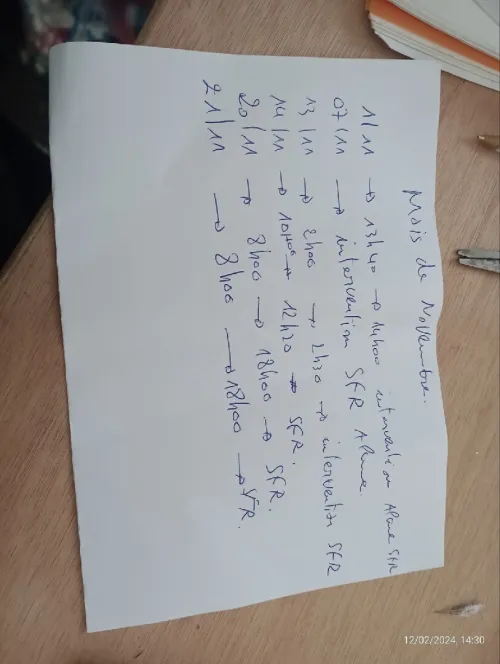 Mois de Novembre.
1/11 → 13h40 → 14h00 intervention Alarme SFR
07/11 → intervention SFR Alarme
13/11 → 2h00 → 2h30 → intervention SFR
14/11 → 10h00 → 12h30 → SFR.
20/11 → 8h00 → 18h00 → SFR.
21/11 → 8h00 → 18h00 → SFR.
12/02/2024, 14:30